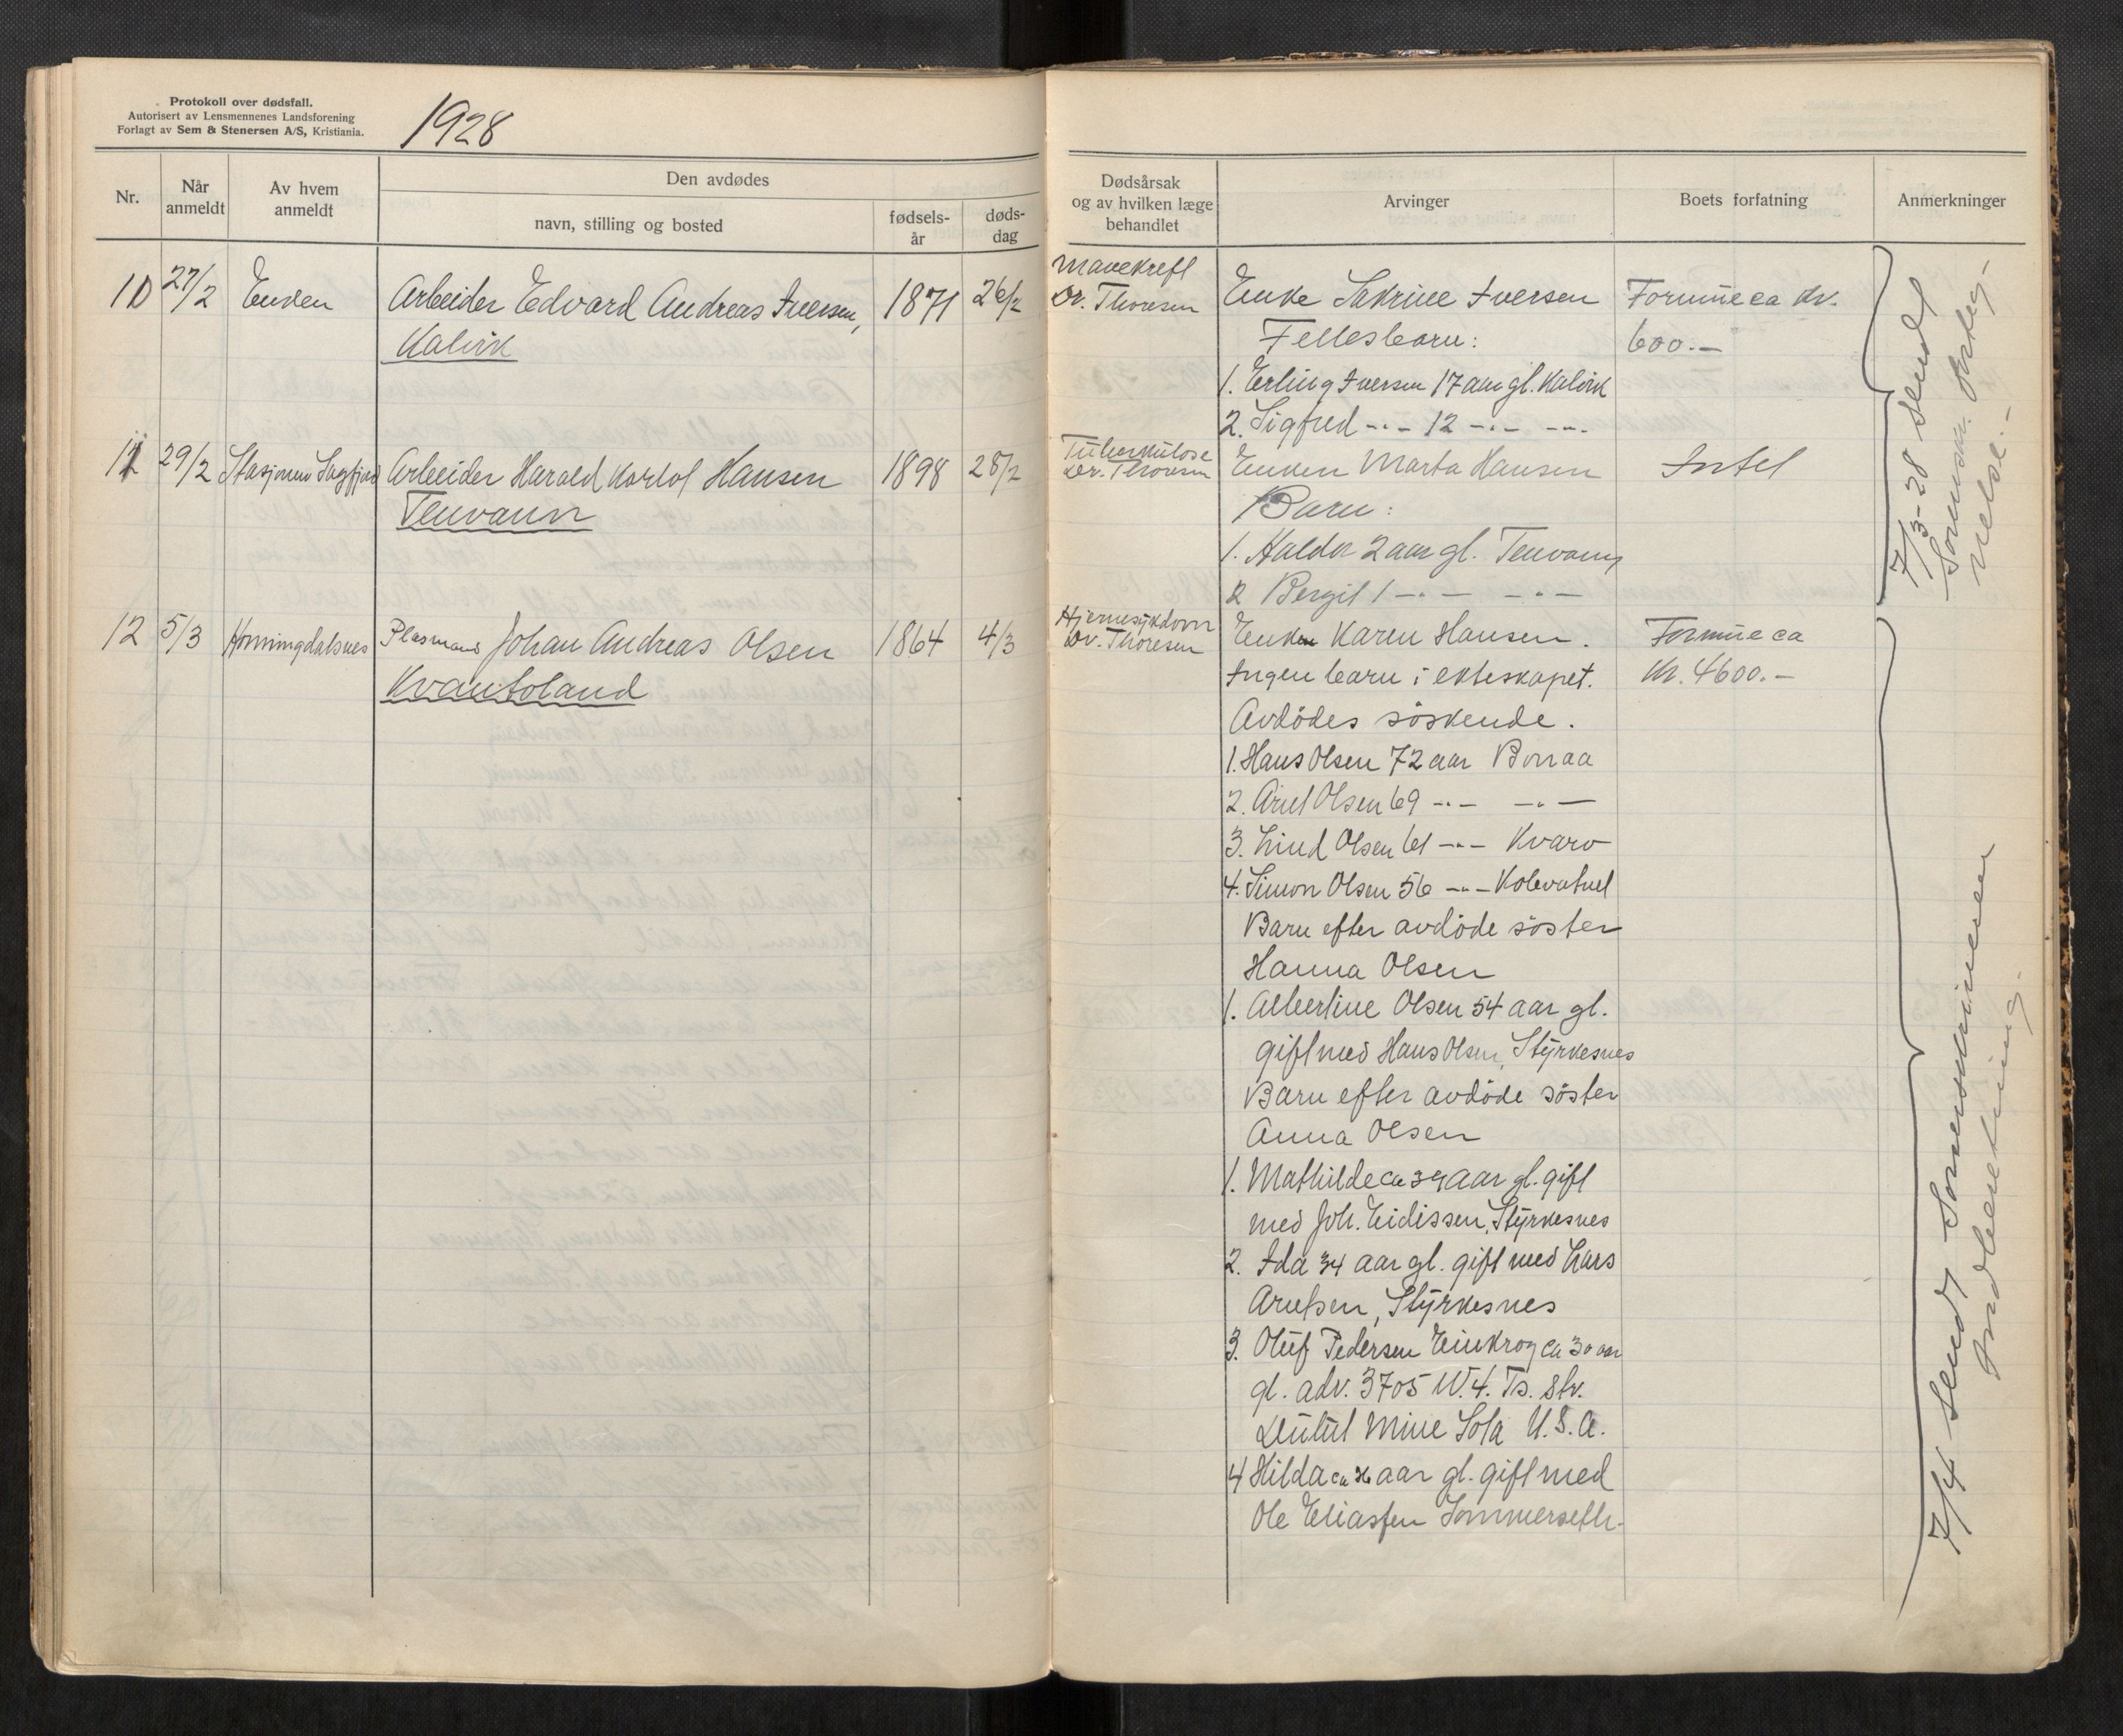 Protokoll over dødsfall.
Autorisert av Lensmennenes Landsforening
Forlagt av Sem & Stenersen A/S, Kristiania.
1928
Nr.
Når anmeldt
Av hvem anmeldt
Den avdødes
navn, stilling og bosted
fødsels-
år
døds-
dag
Dødsårsak
og av hvilken læge
behandlet
Arvinger
Boets forfatning
Anmerkninger
10 27/2 Enken Arbeider Edvard Andreas Iversen, 1871 26/2
Kalvik
Mavekreft
Dr. Thoresen
Enke Sakrine Iversen
Fellesbarn:
1. Erling Iversen 17 aar gl. Kalvik
2. Sigfred -"- 12 -"- -"-
Formue ca kr.
600.-
11 29/2 Stasjonen Sagfjord Arbeider Harald Hansen 1898 28/2
Tennvann
Tuberkulose
Dr. Thoresen
Enken Marta Hansen
Barn:
1. Haldor 2 aar gl. Tennvann
2 Bergit 1 -"- -"-
Intet
7/3-28 sendt
Sorenskr. Anteg-
nelse.-
12 5/3 Horningdalsnes Plasmand Johan Andreas Olsen 1864 4/3
Kvantoland
Hjernesykdom
Dr. Thoresen
Enken Karen Hansen.
Ingen barn i ekteskapet.
Avdödes söskende.
1. Hans Olsen 72 aar Bonaa
2. Arnt Olsen 69 -"- -"-
3. Lind Olsen 61 -"- Kvarv
4. Simon Olsen 56 -"- Kobvatnet
Barn efter avdöde söster
Hanna Olsen
1. Albertine Olsen 54 aar gl.
gift med Hans Olsen, Styrkesnes
Barn efter avdöde söster
Anna Olsen
1. Mathilde ca 39 aar gl. gift
med Joh. Eidissen, Styrkesnes
2. Ida 34 aar gl. gift med Lars
Arntsen, Styrkesnes
3. Oluf Pedersen Einkrog ca 30 aar
gl. adr. 3705 W. 4. Ts. Str.
Dulut Mine Sota U.S.A.
4 Hilda ca 26 aar gl. gift med
Ole Eliassen Sommerseth.
Formue ca
kr. 4600.-
7/4 sendt Sorenskriveren
Indberetning.